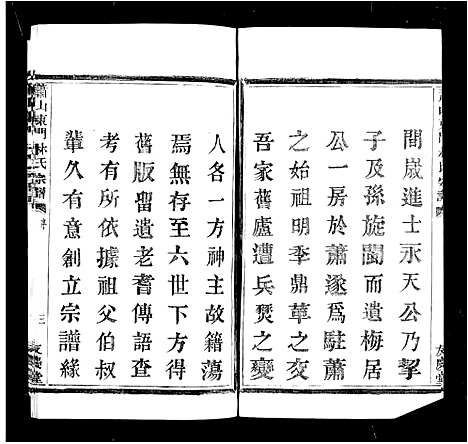 間歲進士永天公乃挈
子及孫旋閩而遺梅居
公一房於蕭遂爲駐蕭
之始祖明季鼎革之交
吾家舊廬遭兵燹之變
人各一方神主故籍蕩
焉無存至六世下方得
舊版畱遺老耆傳語查
考有所依據祖父伯叔
輩久有意創立宗譜緣
蕭山東門林氏宗譜 序 三 友慶堂